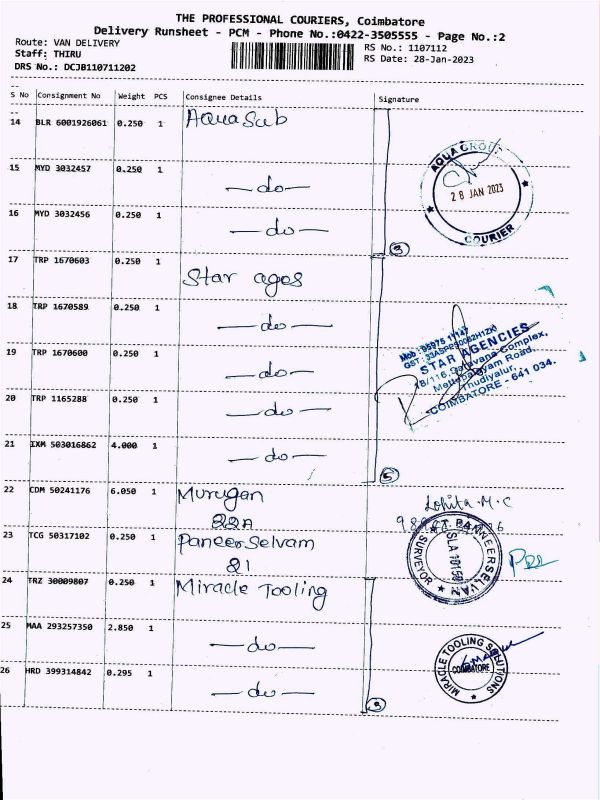 THE PROFESSIONAL COURIERS, Coimbatore
Delivery Runsheet - PCM - Phone No.:0422-3505555 - Page No.:2
Route: VAN DELIVERY
RS No.: 1107112
Staff: THIRU
RS Date: 28-Jan-2023
DRS No.: DCJB110711202
S No Consignment No Weight PCS Consignee Details Signature
14 BLR 6001926061 0.250 1 Aqua Sub
15 MYD 3032457 0.250 1 —do—
16 MYD 3032456 0.250 1 —do—
3
AQUA GROUP
28 JAN 2023
COURIER
17 TRP 1670603 0.250 1 Star ages
18 TRP 1670589 0.250 1 —do—
19 TRP 1670600 0.250 1 —do—
20 TRP 1165288 0.250 1 —do—
21 IXM 503016862 4.000 1 —do—
5
Mob : 95975 17147
STAR AGENCIES
Mettupalayam Road,
Thudiyalur,
COIMBATORE - 641 034.
22 CDM 50241176 6.050 1 Murugan
22A
Lohita.M.C
23 TCG 50317102 0.250 1 Paneer Selvam
21
T. PANNEERSELVAM
SURVEYOR
24 TRZ 30009807 0.250 1 Miracle Tooling
25 MAA 293257350 2.850 1 —do—
26 HRD 399314842 0.295 1 —do—
3
MIRACLE TOOLING SOLUTIONS
COIMBATORE